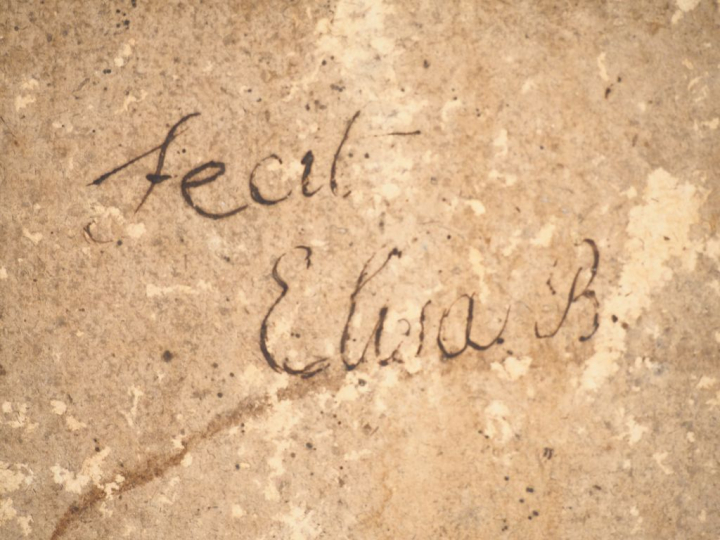 fecit
Elisa B.